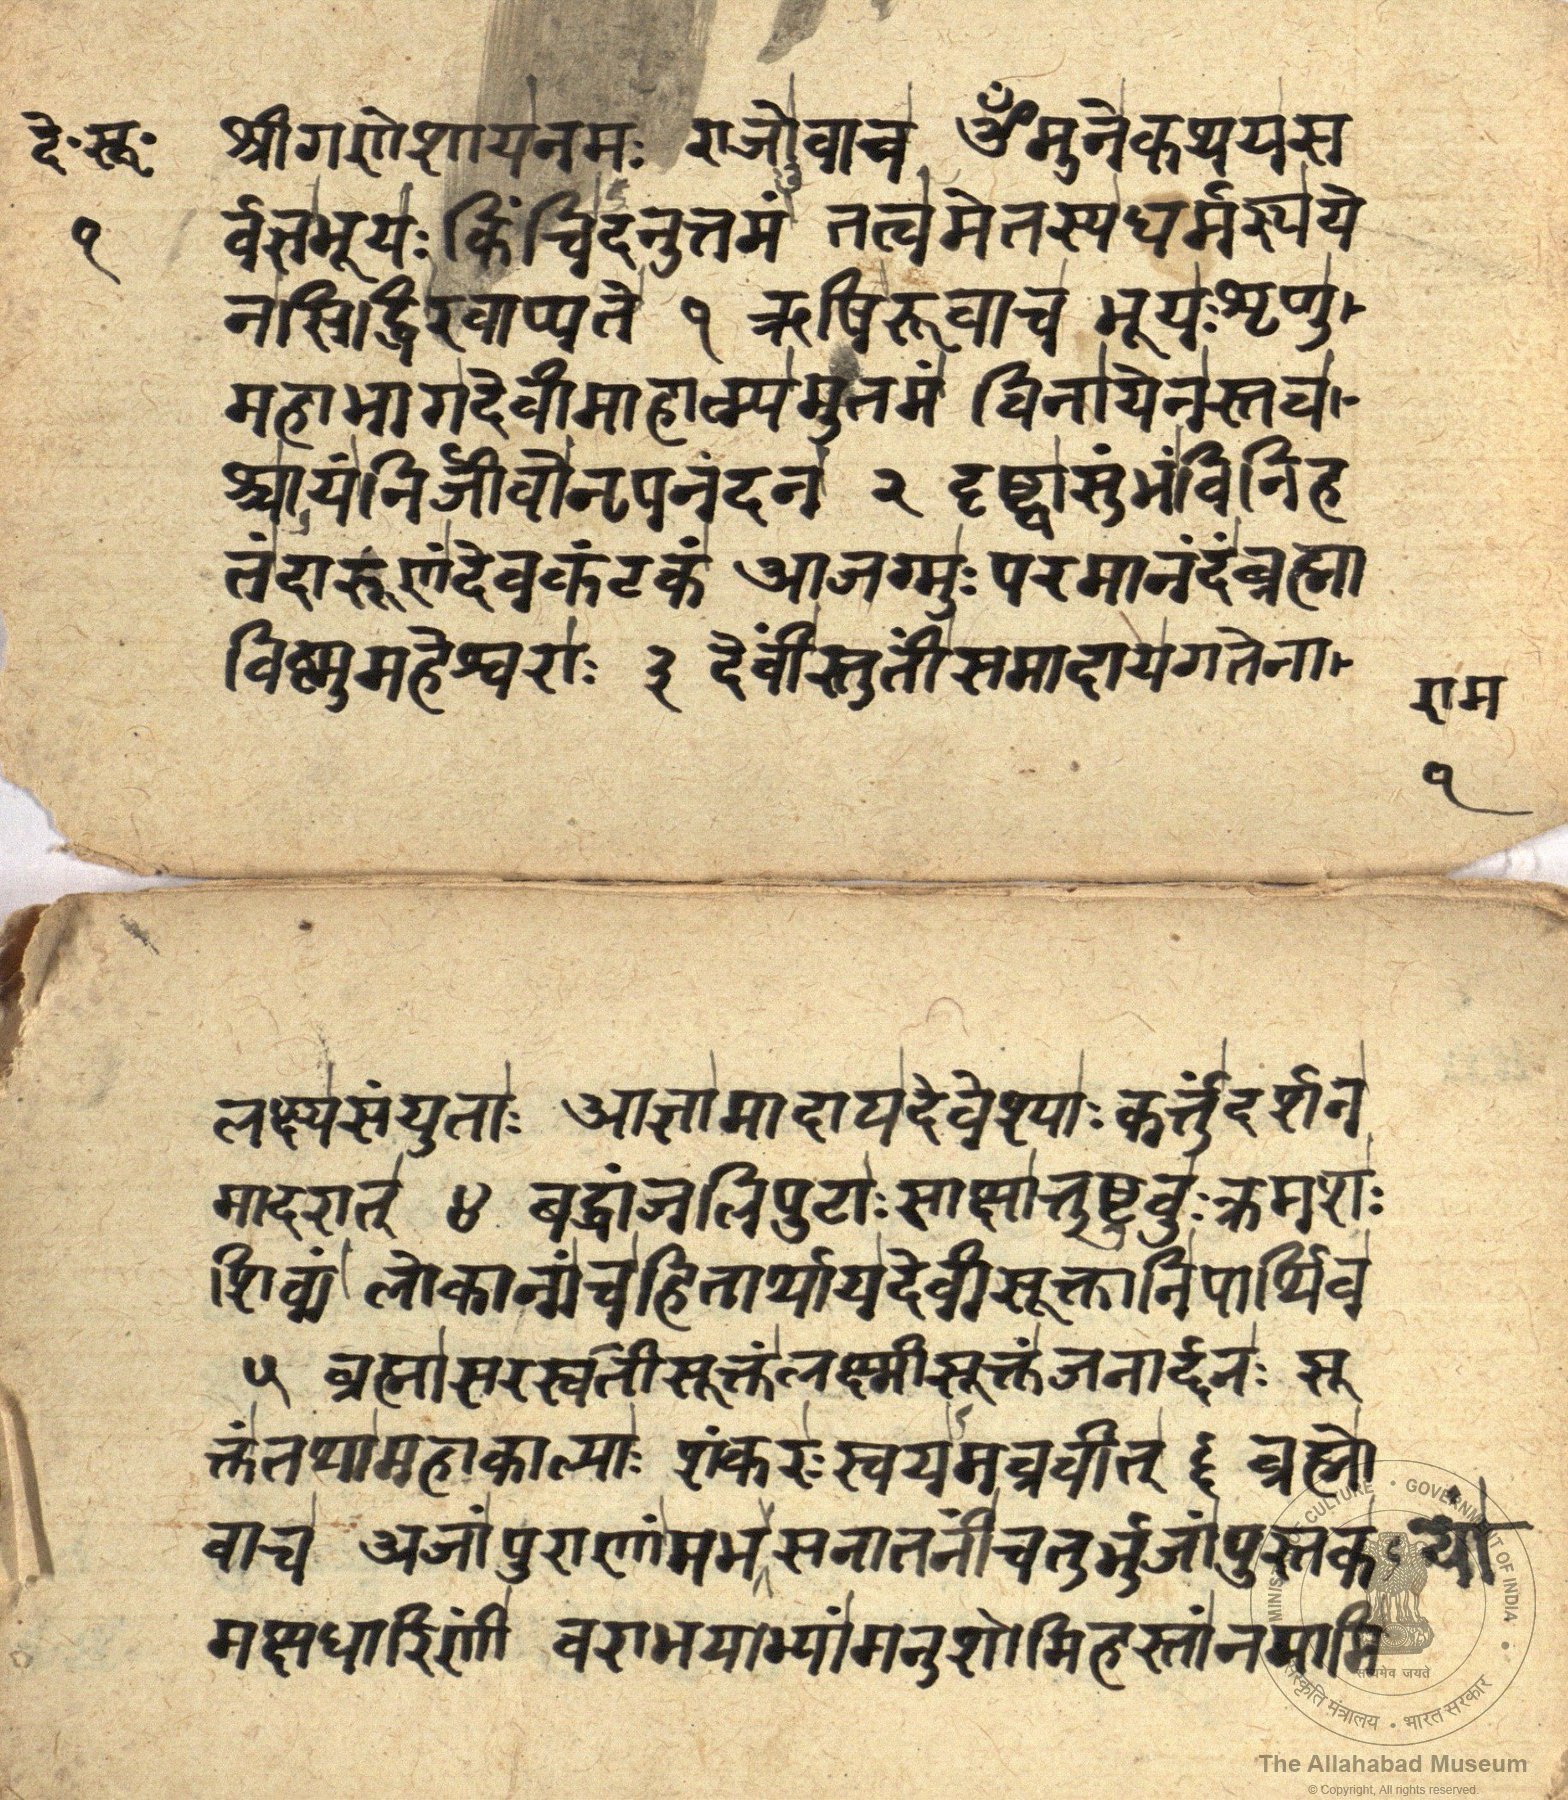 दे॰सू॰
१
श्रीगणेशायनमः राजोवाच ॐमुनेकथयस
र्वज्ञभूयः किंचिदनुत्तमं तत्वमेतस्यधर्मस्यये
नसिद्धिरवाप्यते १ ऋषिरूवाच भूयःशृणु
महाभागदेवीमाहात्म्यमुतमं विनायेनस्तवा
श्चायंनिर्जीवोनृपनंदन २ दृष्ट्वासुंभंविनिह
तंदारूणंदेवकंटकं आजग्मुः परमानंदंब्रह्मा
विष्णुमहेश्वराः ३ देवींस्तुतींसमादायगतेना
राम
१
लक्ष्यसंयुताः आज्ञामादायदेवेश्याः कर्त्तुंदर्शन
मादरात् ४ बद्धांजलिपुटाः साक्षात्तुष्टुवुः क्रमशः
लोकानांचहितार्थायदेवीसूक्तानिपार्थिव
५ ब्रह्मासरस्वतीसूक्तंलक्ष्मीसूक्तंजनार्द्दनः सू
क्तंतथामहाकाल्याः शंकरःस्वयमब्रवीत् ६ ब्रह्मो
वाच अजांपुराणां सनातनींचतुर्भुजांपुस्तक
धारिणीं वराभयाभ्यां नमामि
MINISTRY OF CULTURE • GOVERNMENT OF INDIA
सत्यमेव जयते
संस्कृति मंत्रालय • भारत सरकार
The Allahabad Museum
© Copyright, All rights reserved.